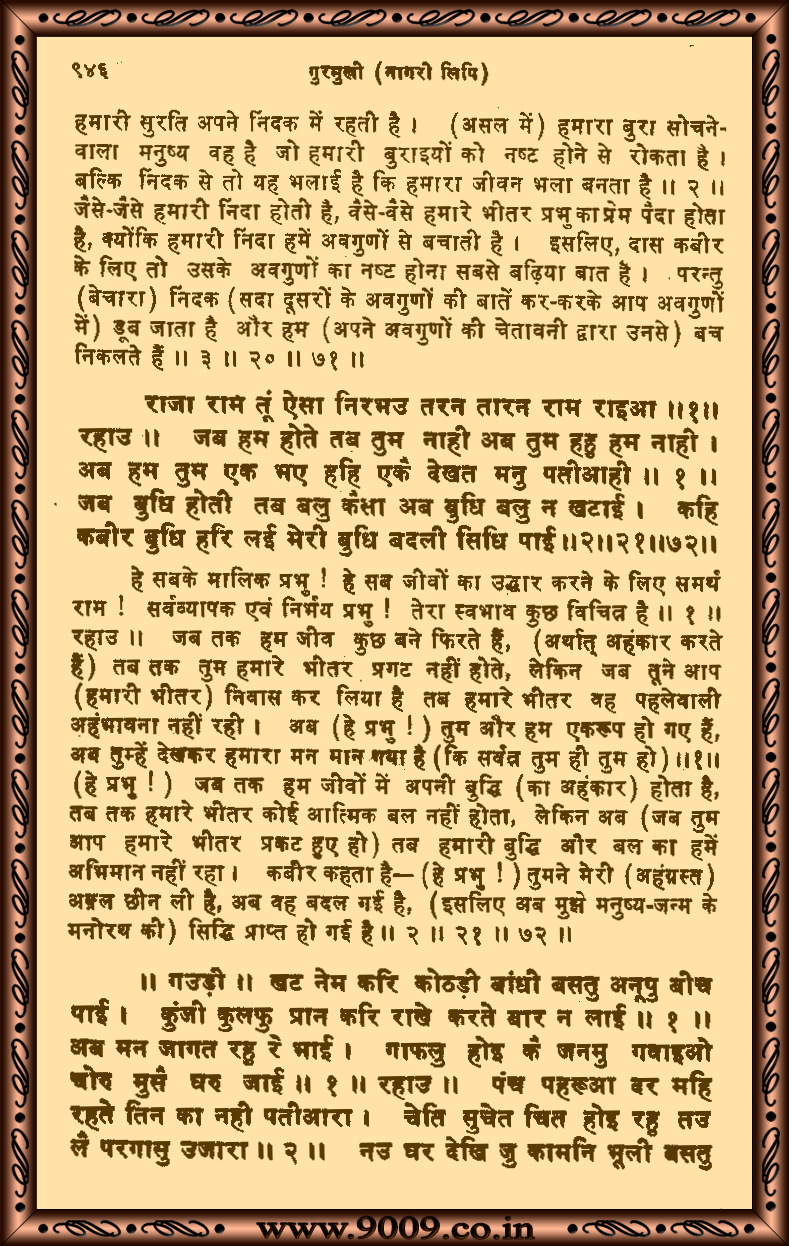 ९४६
गुरमुखी (नागरी लिपि)
हमारी सुरति अपने निंदक में रहती है। (असल में) हमारा बुरा सोचने-
वाला मनुष्य वह है जो हमारी बुराइयों को नष्ट होने से रोकता है।
बल्कि निंदक से तो यह भलाई है कि हमारा जीवन भला बनता है॥ २ ॥
जैसे-जैसे हमारी निंदा होती है, वैसे-वैसे हमारे भीतर प्रभु का प्रेम पैदा होता
है, क्योंकि हमारी निंदा हमें अवगुणों से बचाती है। इसलिए, दास कबीर
के लिए तो उसके अवगुणों का नष्ट होना सबसे बढ़िया बात है। परन्तु
(बेचारा) निंदक (सदा दूसरों के अवगुणों की बातें कर-करके आप अवगुणों
में) डूब जाता है और हम (अपने अवगुणों की चेतावनी द्वारा उनसे) बच
निकलते हैं॥ ३ ॥ २० ॥ ७१ ॥
राजा राम तूं ऐसा निरभउ तरन तारन राम राइआ॥१॥
रहाउ॥ जब हम होते तब तुम नाही अब तुम हहु हम नाही।
अब हम तुम एक भए हहि एकै देखत मनु पतीआही॥ १ ॥
जब बुधि होती तब बलु कैसा अब बुधि बलु न खटाई। कहि
कबीर बुधि हरि लई मेरी बुधि बदली सिधि पाई॥२॥२१॥७२॥
हे सबके मालिक प्रभु ! हे सब जीवों का उद्धार करने के लिए समर्थ
राम ! सर्वव्यापक एवं निर्भय प्रभु ! तेरा स्वभाव कुछ विचित्र है॥ १ ॥
रहाउ॥ जब तक हम जीव कुछ बने फिरते हैं, (अर्थात् अहंकार करते
हैं) तब तक तुम हमारे भीतर प्रगट नहीं होते, लेकिन जब तूने आप
(हमारी भीतर) निवास कर लिया है तब हमारे भीतर वह पहलेवाली
अहंभावना नहीं रही। अब (हे प्रभु !) तुम और हम एकरूप हो गए हैं,
अब तुम्हें देखकर हमारा मन मान गया है (कि सर्वत्र तुम ही तुम हो)॥१॥
(हे प्रभु !) जब तक हम जीवों में अपनी बुद्धि (का अहंकार) होता है,
तब तक हमारे भीतर कोई आत्मिक बल नहीं होता, लेकिन अब (जब तुम
आप हमारे भीतर प्रकट हुए हो) तब हमारी बुद्धि और बल का हमें
अभिमान नहीं रहा। कबीर कहता है— (हे प्रभु !) तुमने मेरी (अहंग्रस्त)
अक्ल छीन ली है, अब वह बदल गई है, (इसलिए अब मुझे मनुष्य-जन्म के
मनोरथ की) सिद्धि प्राप्त हो गई है॥ २ ॥ २१ ॥ ७२ ॥
॥ गउड़ी॥ खट नेम करि कोठड़ी बांधी बसतु अनूपु बीच
पाई। कुंजी कुलफु प्रान करि राखे करते बार न लाई॥ १ ॥
अब मन जागत रहु रे भाई। गाफलु होइ कै जनमु गवाइओ
चोरु मुसै घरु जाई॥ १ ॥ रहाउ॥ पंच पहरूआ दर महि
रहते तिन का नही पतीआरा। चेति सुचेत चित होइ रहु तउ
लै परगासु उजारा॥ २ ॥ नउ घर देखि जु कामनि भूली बसतु
www.9009.co.in